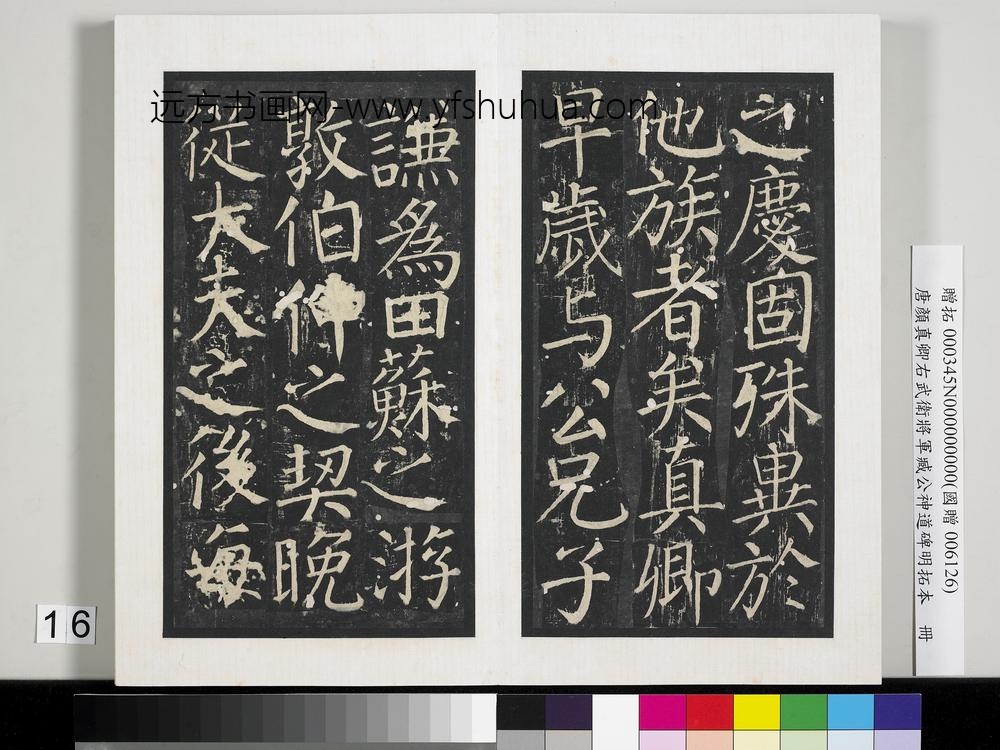 之慶固殊異於
他族者矣真卿
早歲与公兄子
謙為田蘇之游
敦伯仲之契晚
從大夫之後每
远方书画网-www.yfshuhua.com
贈拓 000345N000000000(國贈 006126)
唐顏真卿右武衛將軍臧公神道碑明拓本 冊
16